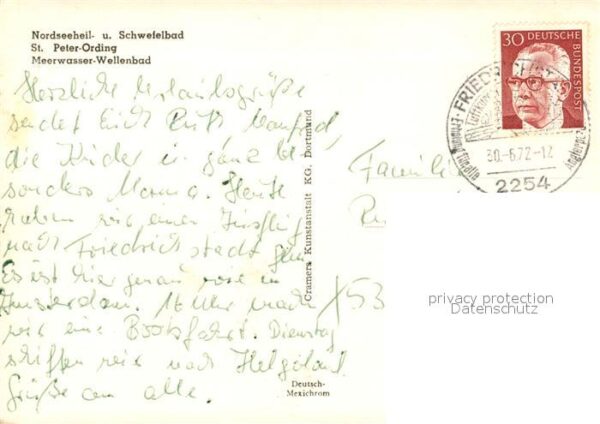 Nordseeheil- u. Schwefelbad
St. Peter-Ording
Meerwasser-Wellenbad
Herzliche Urlaubsgrüße
sendet Euch Ruth, Manfred,
die Kinder u. ganz be-
sonders Mama. Heute
haben wir einen Ausflug
nach Friedrichstadt gem.
Es ist hier genau wie in
Amsterdam. 16 Uhr machen
wir eine Bootsfahrt. Dienstag
schiffen wir nach Helgoland.
Grüße an alle.
Cramers Kunstanstalt KG. Dortmund
Deutsch-
Mexichrom
30 DEUTSCHE
BUNDESPOST
FRIEDRICHST
30.-6.72-12
2254
Familie
53
privacy protection
Datenschutz